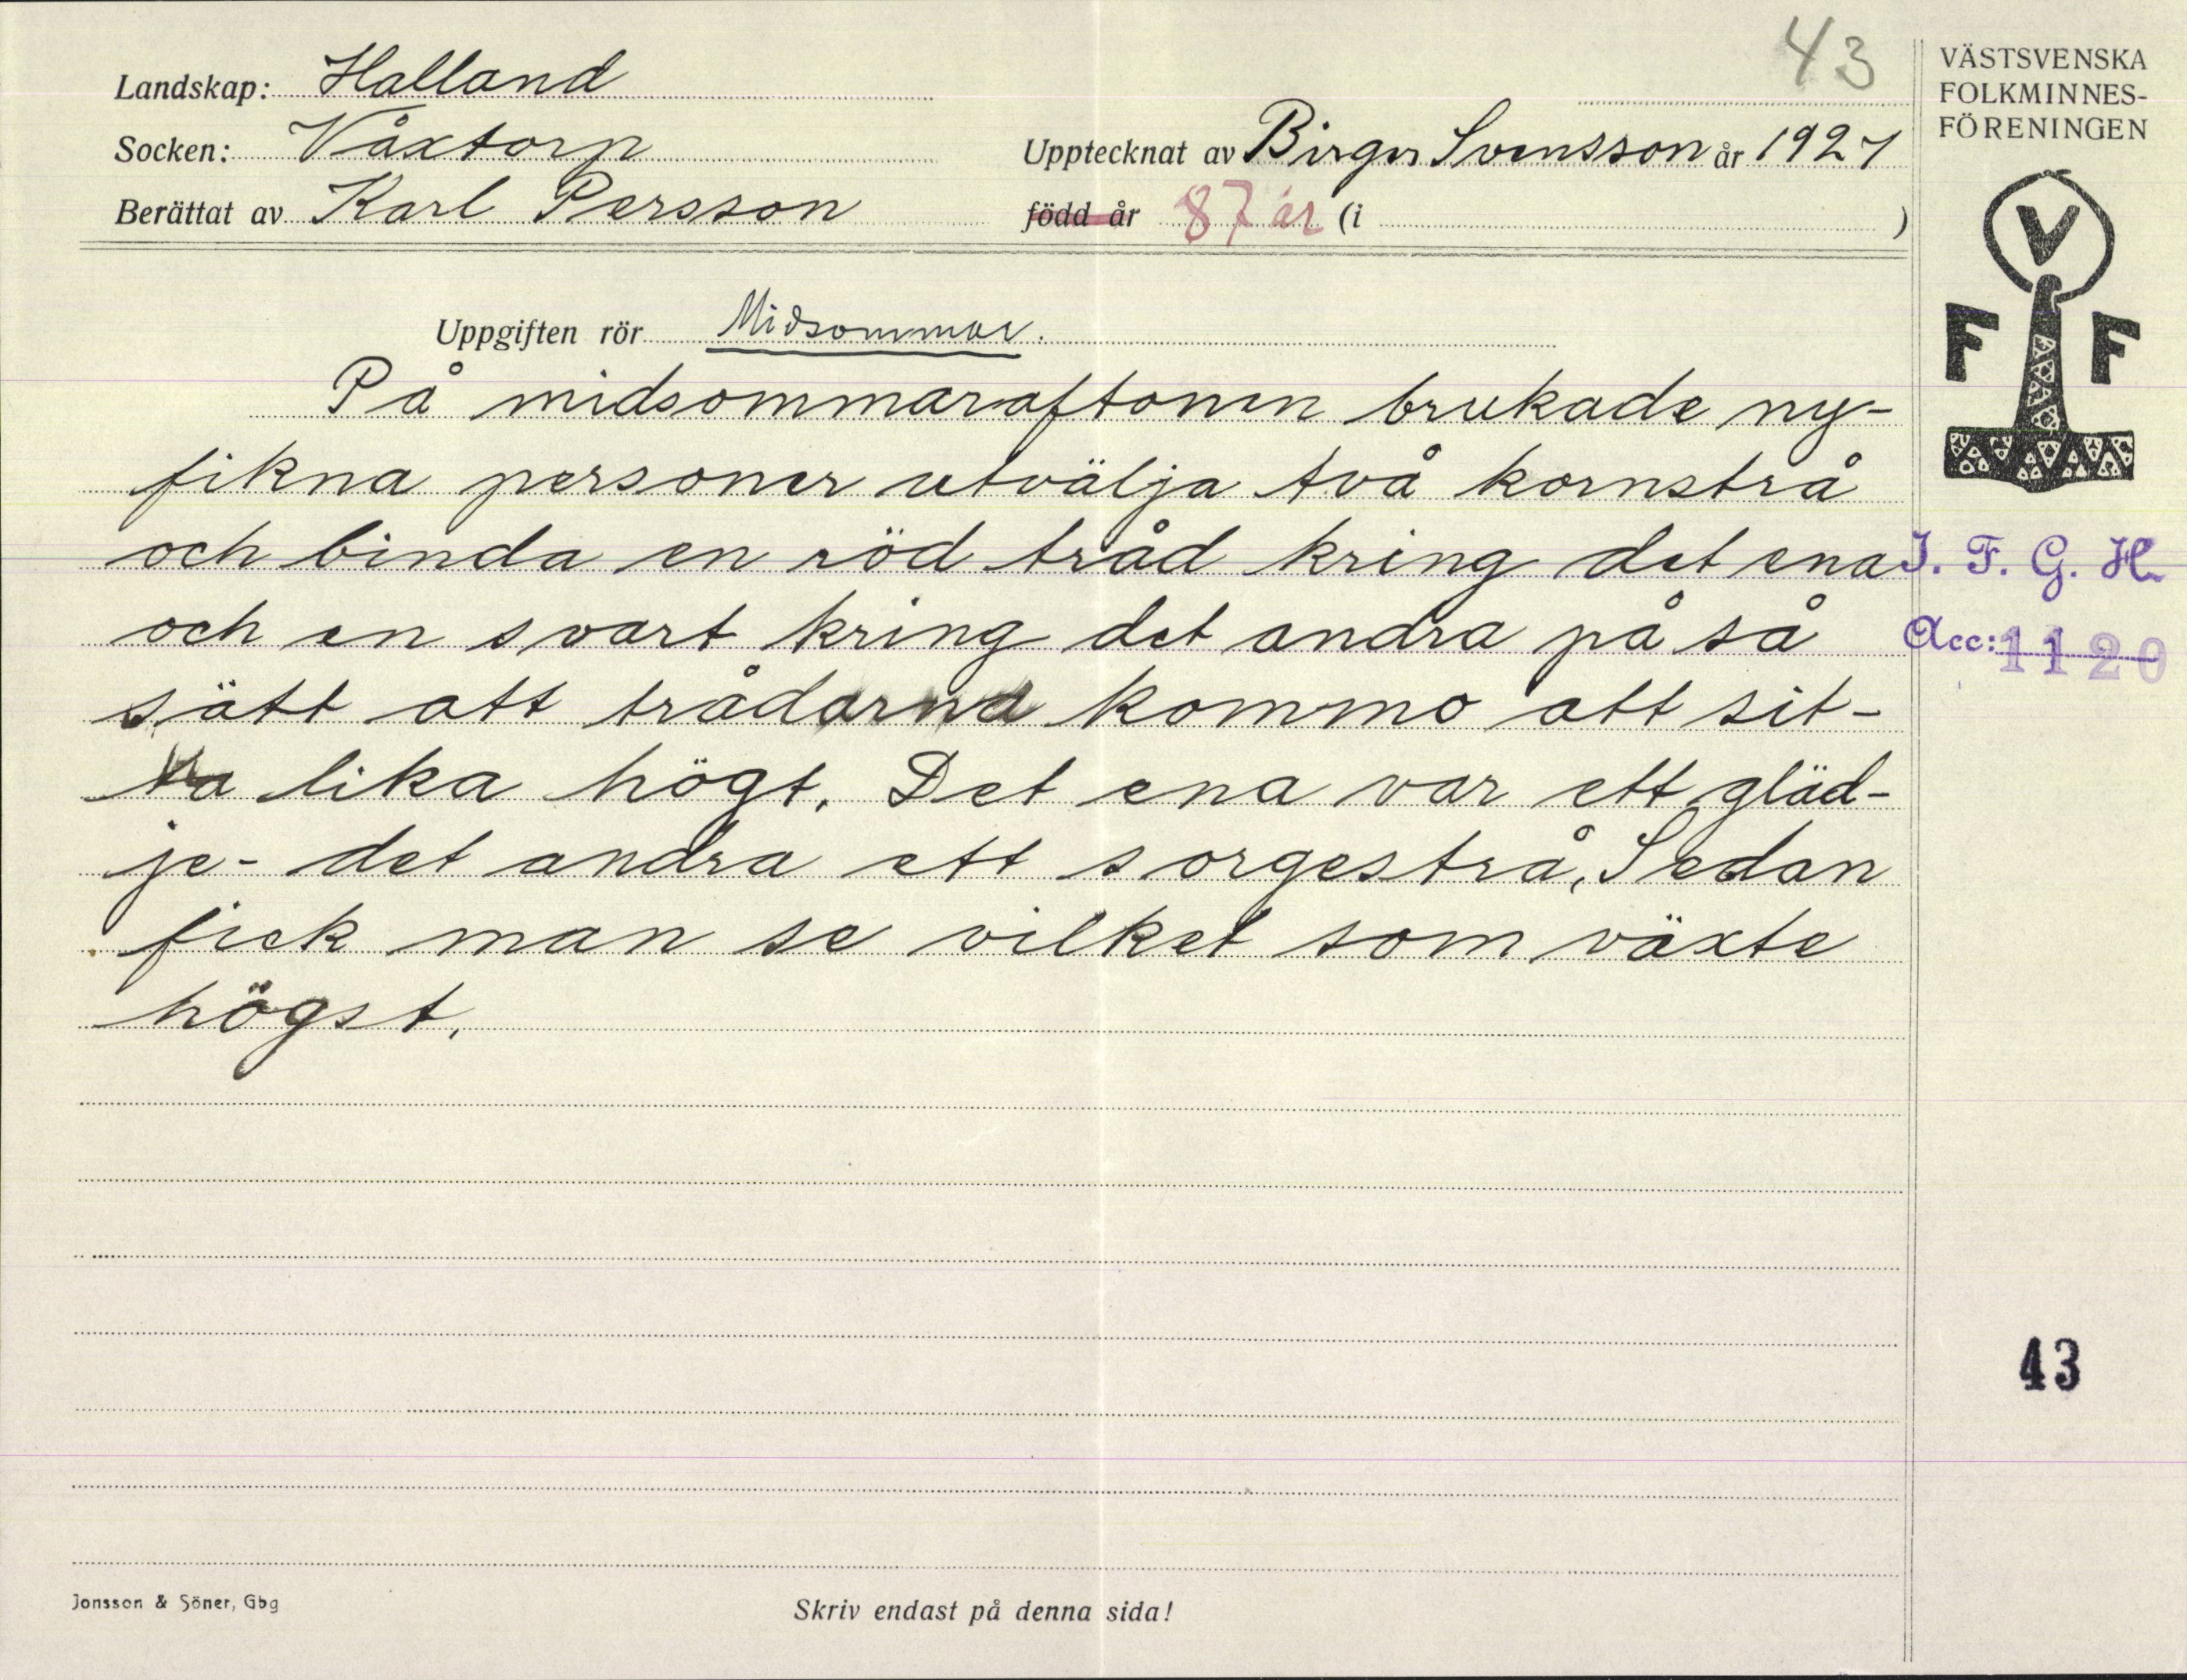 43
Landskap: Halland
Socken: Våxtorp
Upptecknat av Birger Svensson år 1927
Berättat av Karl Persson
född år 87 år (i )
VÄSTSVENSKA
FOLKMINNES-
FÖRENINGEN
V
F F
Uppgiften rör Midsommar.
På midsommaraftonen brukade ny-
fikna personer utvälja två kornstrå
och binda en röd tråd kring det ena
och en svart kring det andra på så
sätt att trådarna kommo att sit-
ta lika högt. Det ena var ett gläd-
je- det andra ett sorgestrå, Sedan
fick man se vilket som växte
högst.
I. F. G. H.
Acc: 1120
43
Jonsson & Söner, Gbg
Skriv endast på denna sida!